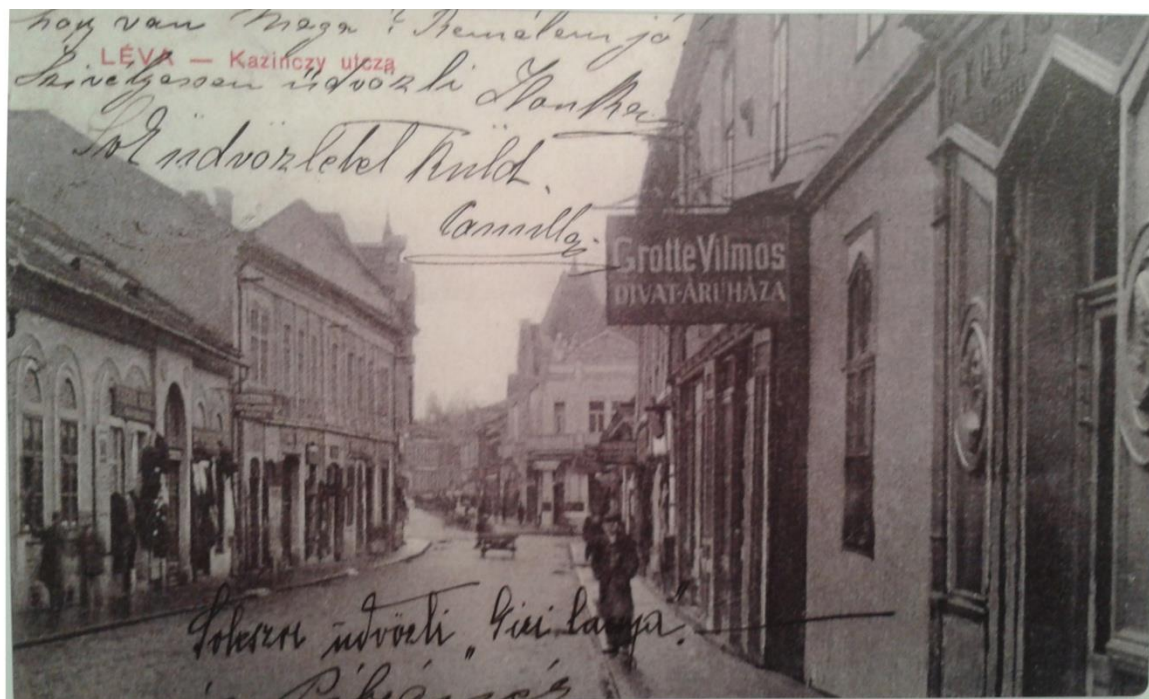 hogy van maga? Remélem jó
LÉVA — Kazinczy utcza
Szivélyessen üdvözli Ilonka
Sok üdvözletet küld.
Camilla
Grotte Vilmos
DIVAT-ÁRUHÁZA
Sokszor üdvözli „Gizi